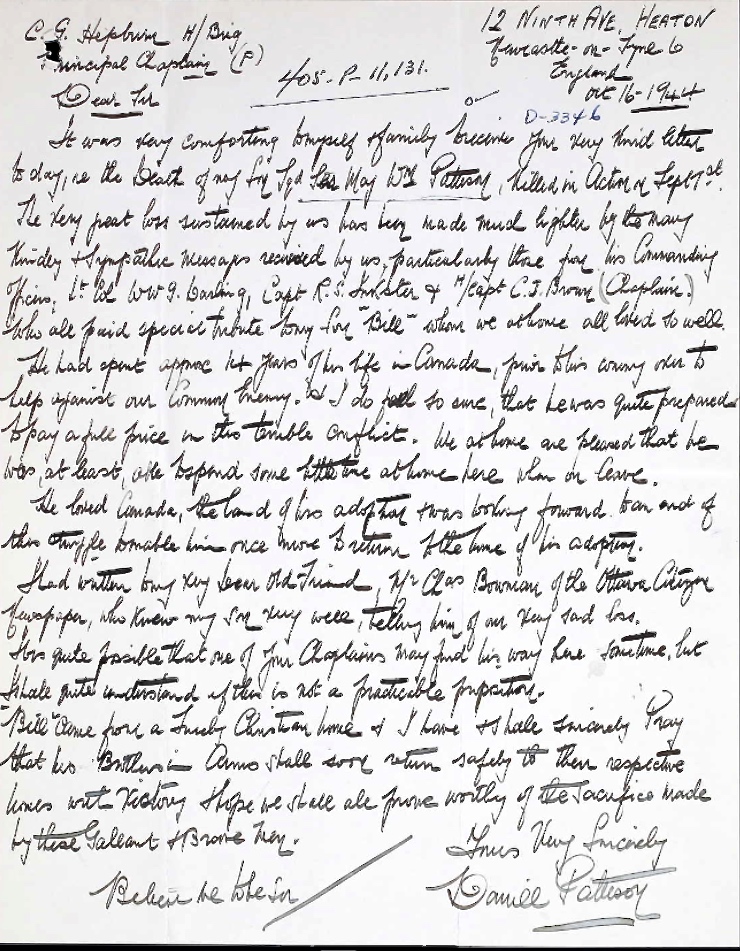 C. G. Hepburn H/Brig
Principal Chaplain (P)
12 NINTH AVE, HEATON
Newcastle-on-Tyne 6
England
Oct 16-1944
405-P-11,131.
D-3346
Dear Sir
It was very comforting to myself & family to receive your very kind letter
to day, re the Death of my Son Sgd May Wm Pattison, killed in Action on Sept 1st.
The very great loss sustained by us has been made much lighter by the many
Kindly & Sympathic messages received by us, particularly those from his Commanding
Officer, Lt Col W.W.G. Darling, Capt R.S. Inkster & H/Capt C.J. Brown (Chaplain.)
Who all paid special tribute to my Son "Bill" whom we at home all loved so well.
He had spent approx 14 years of his life in Canada, prior to his coming over to
help against our Common Enemy. & I do feel so sure, that he was quite prepared
to pay a full price in this terrible conflict. We at home are pleased that he
was, at least, able to spend some little time at home here when on leave.
He loved Canada, the land of his adoption & was looking forward to an end of
this struggle to enable him once more to return to the home of his adopting.
I had written to my very dear Old Friend, Mr Chas Bowman of the Ottawa Citizen
Newspaper, who knew my Son very well, telling him of our very sad loss.
It is quite possible that one of your Chaplains may find his way here sometime, but
I shall quite understand if this is not a practicable proposition.
"Bill" Came from a Christian home & I have & shall sincerely Pray
that his Brothers in Arms shall soon return safely to their respective
homes with Victory & hope we shall all prove worthy of the Sacrifice made
by these Gallant & Brave Men.
Yours Very Sincerely
Believe me to be Sir
Daniel Pattison